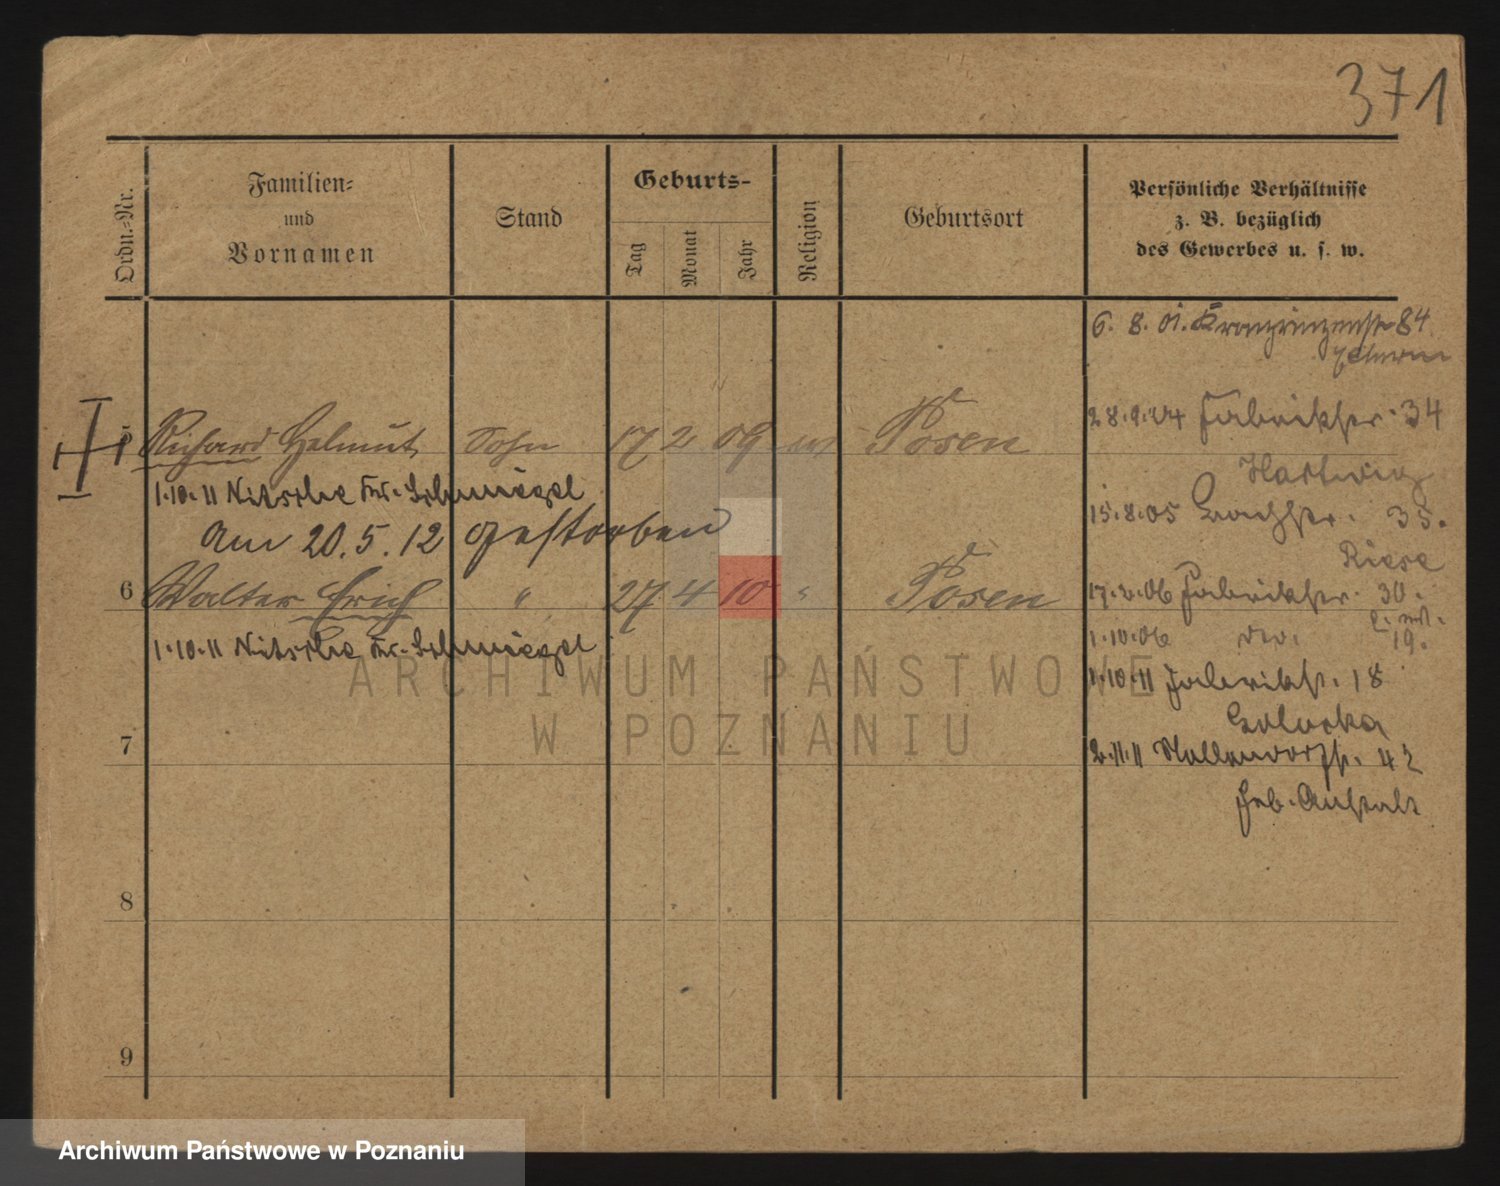 371
Ordn.-Nr.
Familien-
und
Vornamen
Stand
Geburts-
Tag
Monat
Jahr
Religion
Geburtsort
Persönliche Verhältnisse
z. B. bezüglich
des Gewerbes u. s. w.
6. 8. 01. Kronprinzenstr 84
5 Richard Helmut Sohn 17 2 09 Posen
28.9.04 Fabrikstr. 34
Hartwig
1.10.11 Nitsche Kr. Schmiegel
15.8.05 35.
am 20.5.12 gestorben
Riese
6 Walter Erich " 27 4 10 " Posen
17.2.06 Fabrikstr. 30.
1.10.06 19.
1.10.11 Nitsche Kr. Schmiegel
1.10.11 Fabrikst. 18
ARCHIWUM PAŃSTWOWE
W POZNANIU
7
2.11.11 Nollendorfst. 42
Geb. Anstalt
8
9
Archiwum Państwowe w Poznaniu